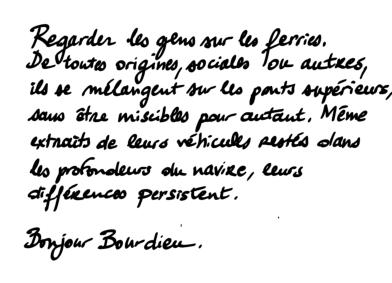 Regarder les gens sur les ferries.
De toutes origines, sociales ou autres,
ils se mélangent sur les ponts supérieurs,
sans être miscibles pour autant. Même
extraits de leurs véhicules restés dans
les profondeurs du navire, leurs
différences persistent.
Bonjour Bourdieu.